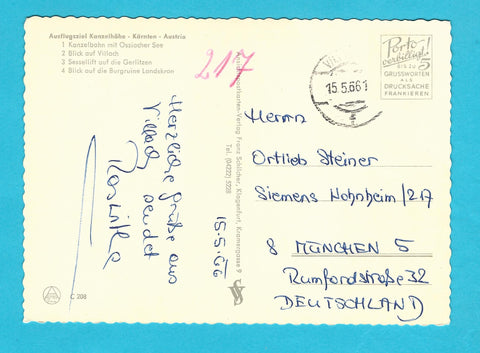 Ausflugsziel Kanzelhöhe - Kärnten - Austria
1 Kanzelbahn mit Ossiacher See
2 Blick auf Villach
3 Sessellift auf die Gerlitzen
4 Blick auf die Burgruine Landskron
217
Herzliche Grüße aus
Villach sendet
15.5.66
Verlag Franz Schilcher, Klagenfurt,
Tel. (04222) 5228
15.5.66
Porto-
verbilligt!
BIS ZU 5
GRUSSWORTEN
ALS
DRUCKSACHE
FRANKIEREN
Herrn
Ortlieb Steiner
Siemens Wohnheim/217
8 MÜNCHEN 5
Rumfordstraße 32
DEUTSCHLAND
C 208